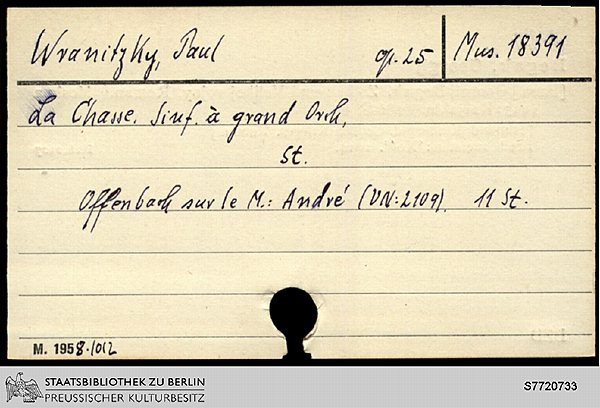 Wranitzky, Paul op. 25 Mus. 18391
La Chasse. Sinf. à grand Orch.
St.
Offenbach sur le M.: André (VN: 2109). 11 St.
M. 1958.1012
STAATSBIBLIOTHEK ZU BERLIN
PREUSSISCHER KULTURBESITZ
S7720733